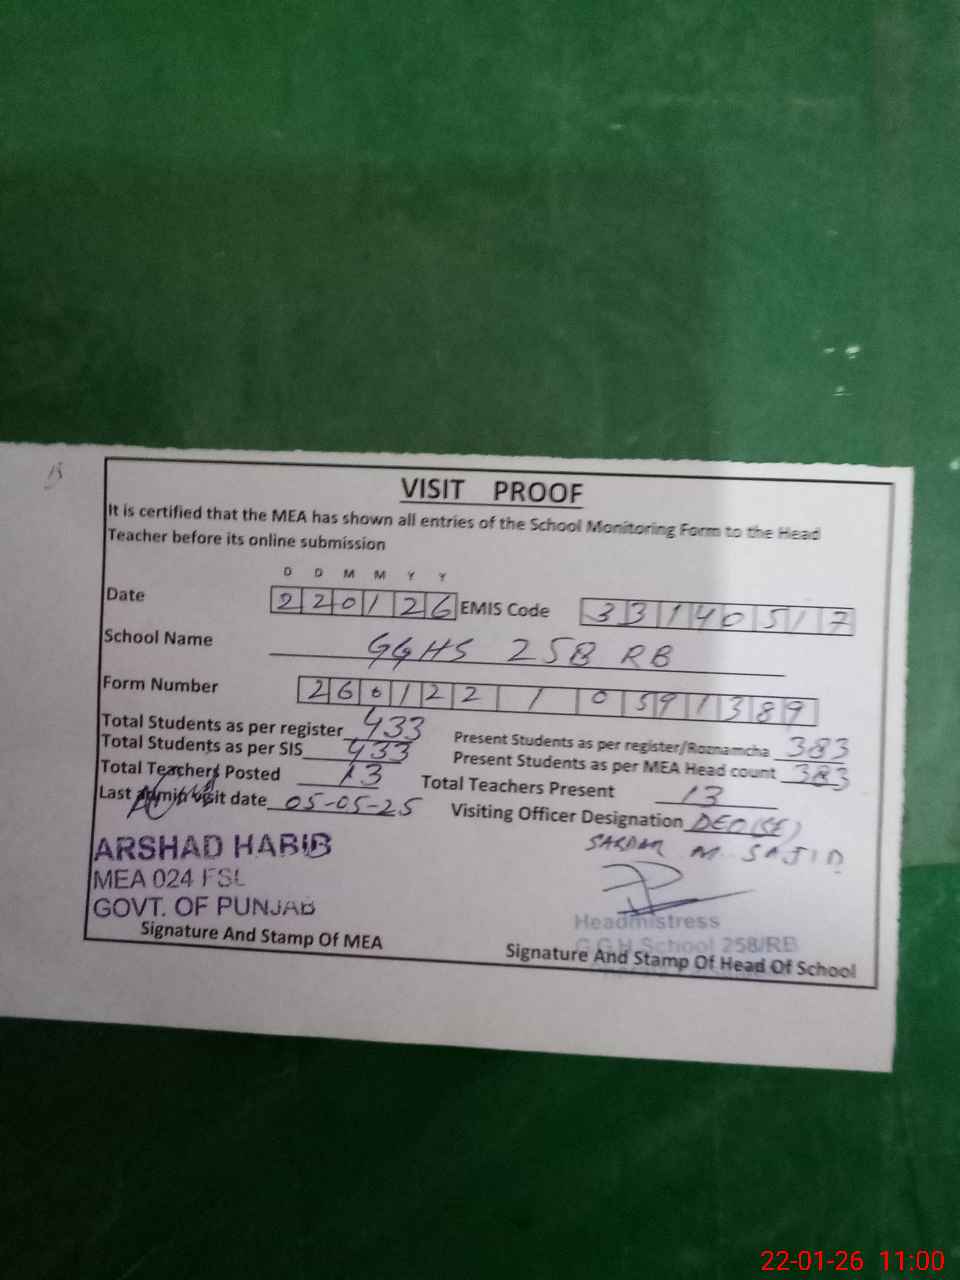 VISIT PROOF
It is certified that the MEA has shown all entries of the School Monitoring Form to the Head
Teacher before its online submission
D D M M Y Y
Date 220126 EMIS Code 33140517
School Name GGHS 258 RB
Form Number 260122 1 0591389
Total Students as per register 433 Present Students as per register/Roznamcha 383
Total Students as per SIS 433 Present Students as per MEA Head count 383
Total Teachers Posted 13 Total Teachers Present 13
Last admin visit date 05-05-25 Visiting Officer Designation DEO(SE)
SARDAR M. SAJID
ARSHAD HABIB
MEA 024 FSL
GOVT. OF PUNJAB
Signature And Stamp Of MEA
Headmistress
G.G.H.School 258/RB
Signature And Stamp Of Head Of School
22-01-26 11:00